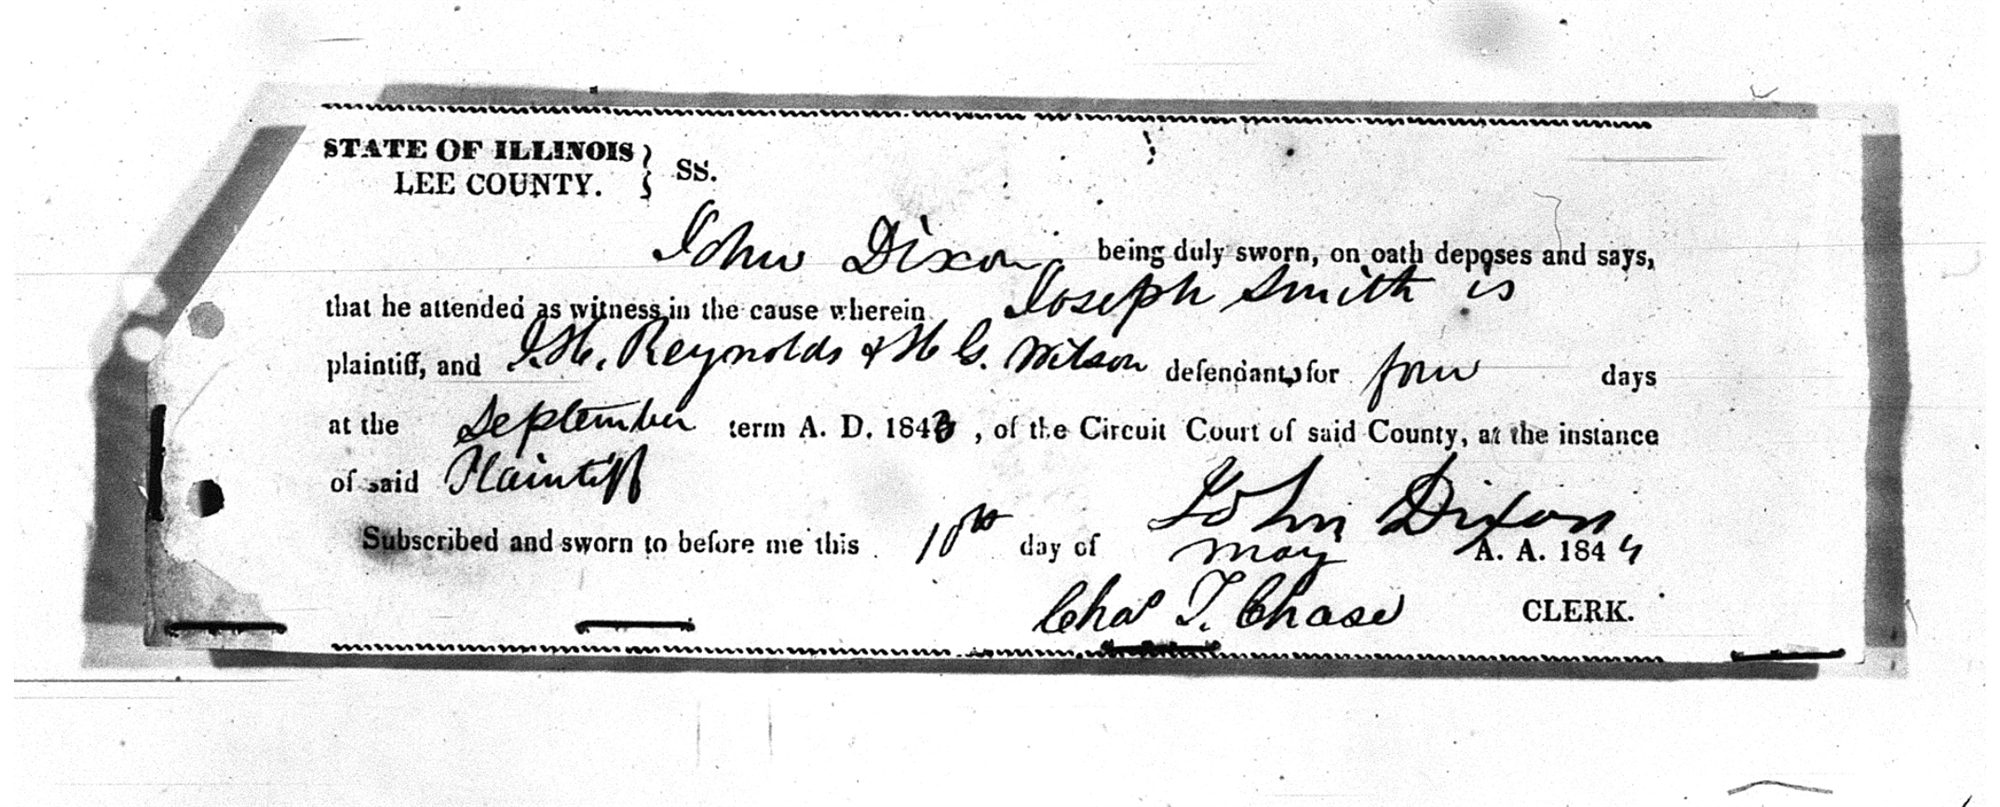 STATE OF ILLINOIS } SS.
LEE COUNTY.
John Dixon being duly sworn, on oath deposes and says,
that he attended as witness in the cause wherein Joseph Smith is
plaintiff, and J. H. Reynolds & H G. Wilson defendants for four days
at the September term A. D. 1843, of the Circuit Court of said County, at the instance
of said Plaintiff
John Dixon
Subscribed and sworn to before me this 10th day of May A. A. 1844
Chas T. Chase CLERK.